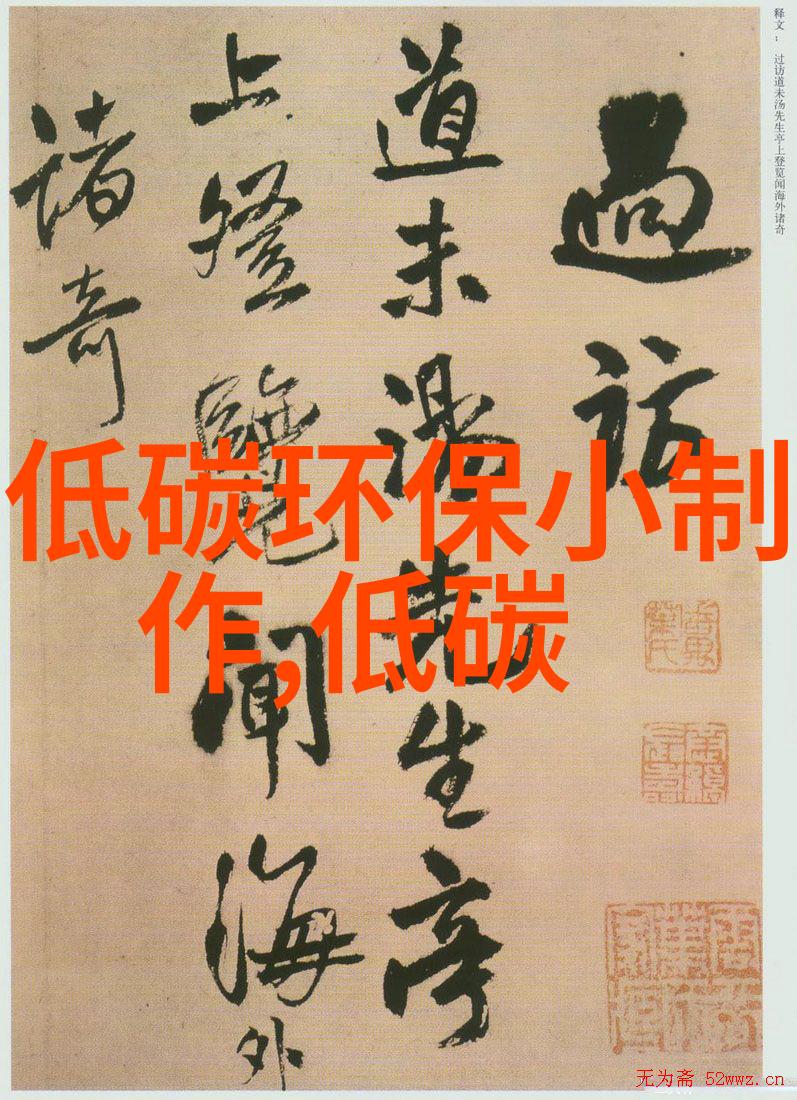 释文： 过访道未汤先生亭上登览闻海外诸奇
過訪
道未湯先生亭
上登覽聞海外
諸奇
低碳环保小制
作,低碳
无为斋 52wwz.cn